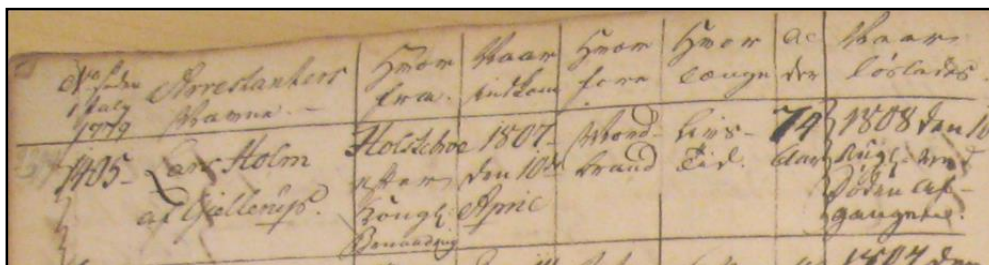 No siden
1 July
1779
Arrestanters
Navne.
Hvor
fra.
Naar
indkom
Hvor
fore
Hvor
længe
Al
der
Naar
løsladt
1405
Lars Holm
af Gjellerup.
Holstebroe
efter
Kongl.
Benaading
1807
den 10de
April
Mord
brand
Livs-
Tid.
74
Aar
1808 den
ved
Døden af-
gangen.
1807 den